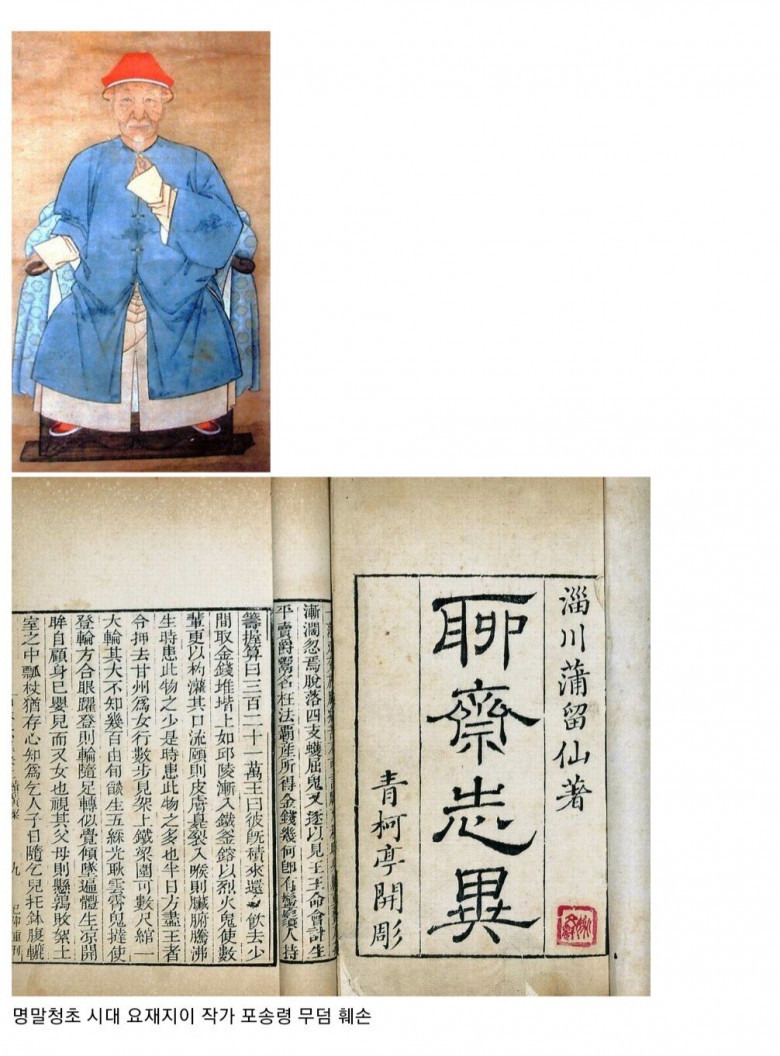 淄川蒲留仙著
聊齋志異
青柯亭開彫
漸濶忽焉脫落四支蠖屈鬼又逐以見王王命會計生
平賣爵鬻名枉法霸産所得金錢幾何即有鬚人持
籌握算曰三百二十一萬王曰彼既積來還飲去少
間取金錢堆堦上如邱陵漸入鐵釜鎔以烈火鬼使數
輩更以杓灌其口流頤則皮膚臭裂入喉則臟腑騰沸
生時患此物之少是時患此物之多也半日方盡王者
令押去甘州為女行數步見架上鐵梁圍可數尺綰一
大輪其大不知幾百由旬燄生五綵光耿雲霄鬼撻使
登輪方合眼躍登則輪隨足轉似覺傾墜遍體生凉開
眸自顧身已嬰兒而又女也視其父母則懸鶉敗絮土
室之中瓢杖猶存心知為乞人子日隨乞兒托鉢腹轆
명말청초 시대 요재지이 작가 포송령 무덤 훼손